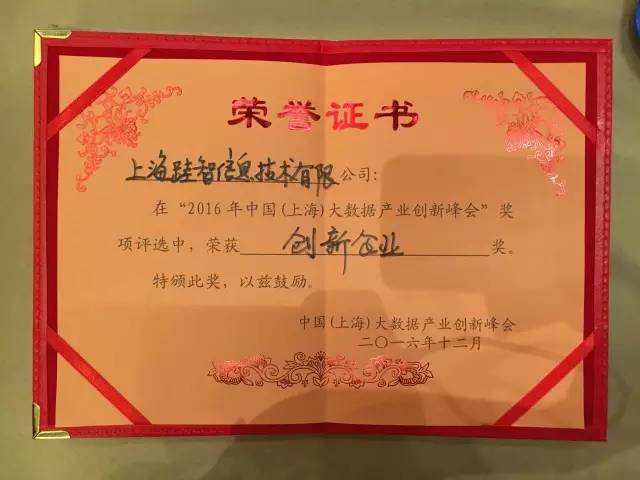 荣誉证书
上海跬智信息技术有限公司:
在“2016年中国(上海)大数据产业创新峰会”奖
项评选中,荣获创新企业奖。
特颁此奖,以兹鼓励。
中国(上海)大数据产业创新峰会
二〇一六年十二月